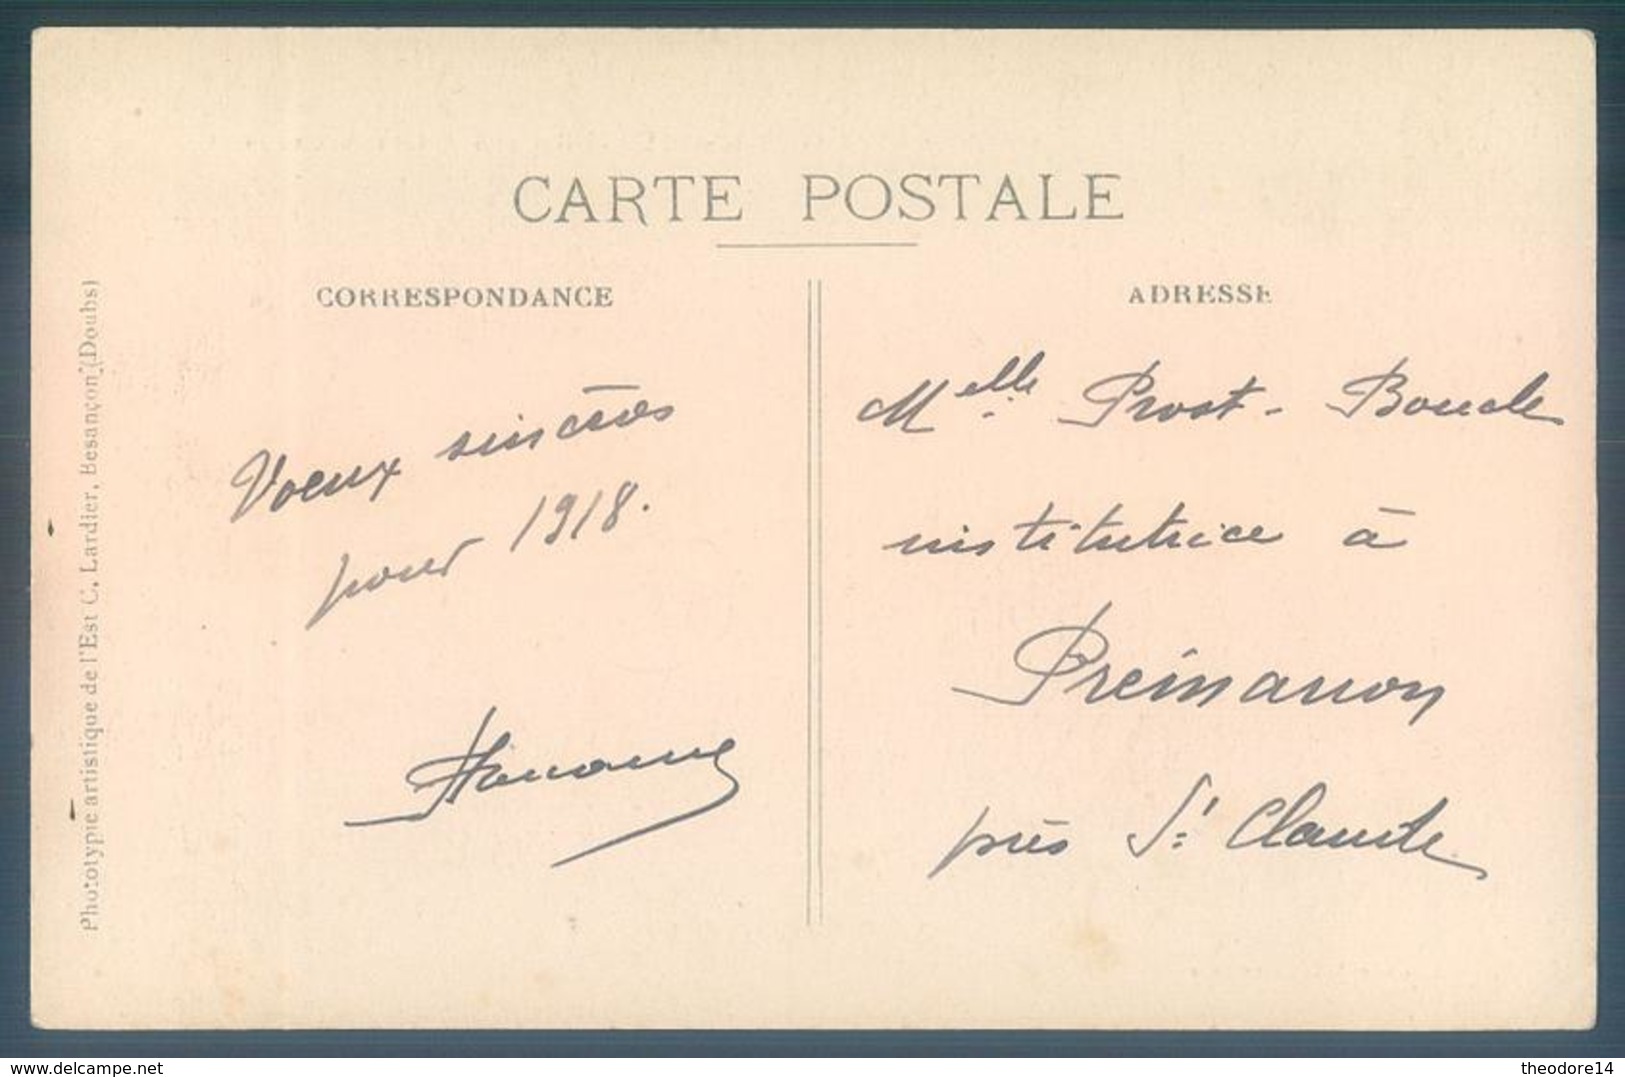 CARTE POSTALE
CORRESPONDANCE
Voeux sincères
pour 1918.
ADRESSE
Melle Prost-Boucle
institutrice à
Prémanon
près St Claude
Phototypie artistique de l'Est C. Lardier, Besançon (Doubs)
www.delcampe.net
theodore14